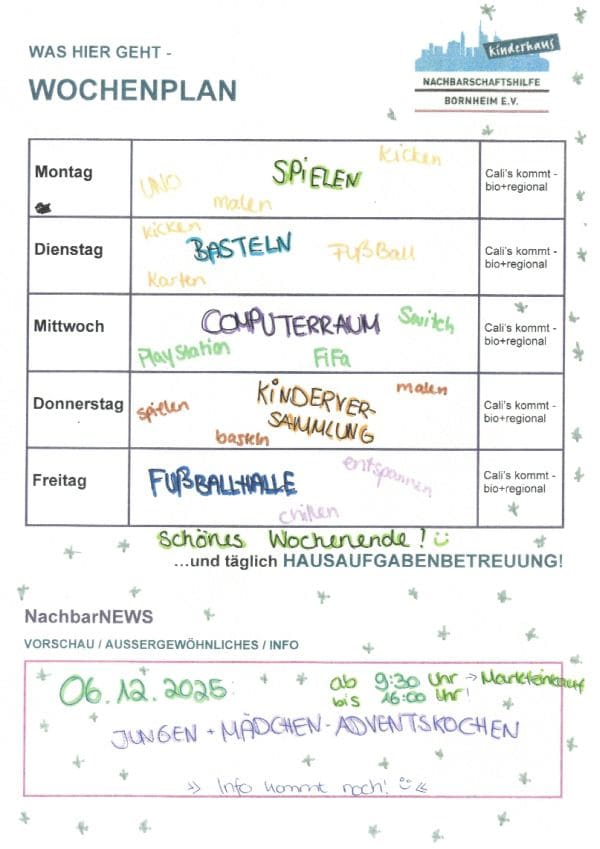 WAS HIER GEHT -
WOCHENPLAN
kinderhaus
NACHBARSCHAFTSHILFE
BORNHEIM E.V.
Montag
UNO
malen
SPIELEN
kicken
Cali's kommt -
bio+regional
Dienstag
kicken
BASTELN
Fußball
Karten
Cali's kommt -
bio+regional
Mittwoch
COMPUTERRAUM
Switch
PlayStation
FiFa
Cali's kommt -
bio+regional
Donnerstag
spielen
KINDERVER-
SAMMLUNG
malen
basteln
Cali's kommt -
bio+regional
Freitag
FUßBALLHALLE
entspannen
chillen
Cali's kommt -
bio+regional
Schönes Wochenende!
...und täglich HAUSAUFGABENBETREUUNG!
NachbarNEWS
VORSCHAU / AUSSERGEWÖHNLICHES / INFO
06.12.2025
ab 9:30 Uhr → Markteinkauf
bis 16:00 Uhr!
JUNGEN + MÄDCHEN-ADVENTSKOCHEN
>> Info kommt noch! ☺ <<